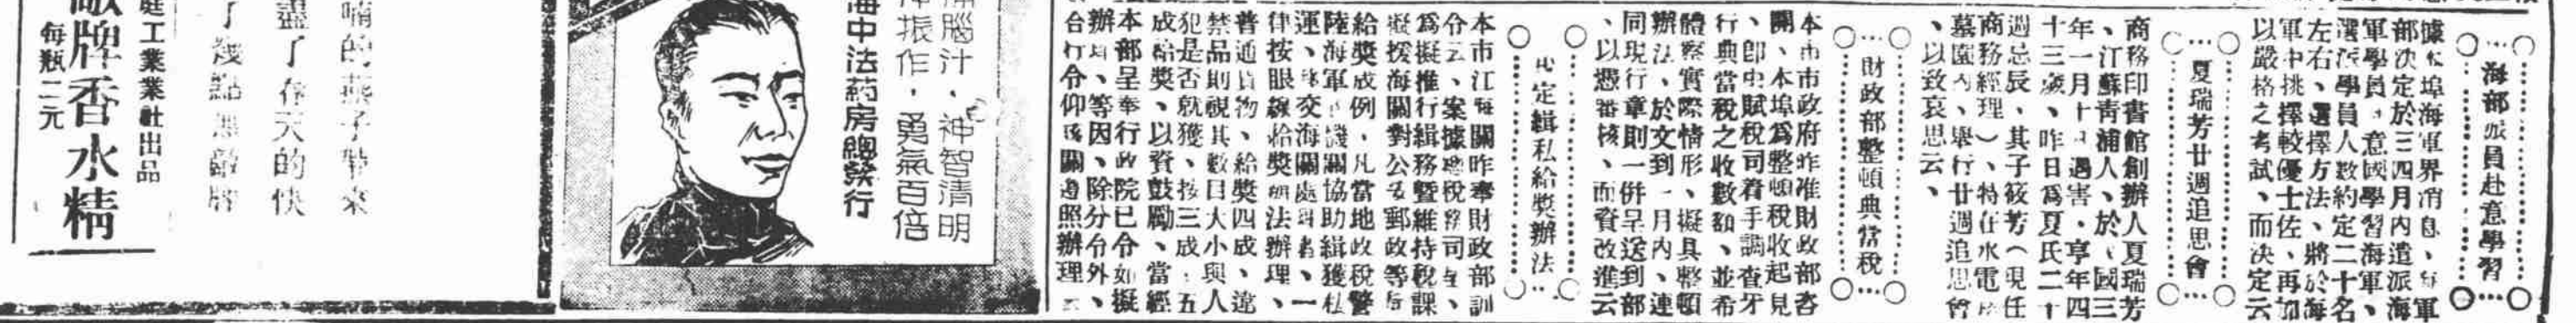 海部派員赴意學習
據本埠海軍界消息、每軍
部決定於三四月內遣派海
軍學員、意國學習海軍、
選派學員人數約定二十名
左右、選擇方法、將於海
軍中挑擇較優士佐、再加
以嚴格之考試、而決定云
夏瑞芳廿週追思會
商務印書館創辦人夏瑞芳
、江蘇青浦人、於民國三
年一月十日遇害、享年四
十三歲、昨日為夏氏二十
週忌辰、其子筱芳（現任
商務經理）、特在水電
墓園內、舉行廿週追思會
、以致哀思云、
財政部整頓典當稅
本市市政府昨准財政部咨
開、本埠為整頓稅收起見
、卽由賦稅司着手調查牙
行典當稅之收數額、並希
體察實際情形、擬具整頓
辦法、於文到一月內、連
同現行章則一併呈送到部
、以憑審核、而資改進云
定緝私給獎辦法
本市江海關昨奉財政部訓
令云、案據 稅 司 、
為擬推行緝務暨維持稅課
擬援海關對公 郵政等
給獎成例、凡當地政稅警
陸海軍 機關協助緝獲私
運、移交海關處 者、一
律按眼線給獎 法辦理、
普通貨物、給獎四成、違
禁品則視其數目大小與人
犯是否就獲、按三成 五
成給獎、以資鼓勵、當經
本部呈奉行政院已令如擬
辦理、等因、除分令外、
台行令仰 關遵照辦理云
腦汁、神智清明
振作，勇氣百倍
海中法葯房總發行
喃的燕子帶來
盡了春天的快
了幾點 敵牌
庭工業社出品
敵牌香水精
每瓶二元